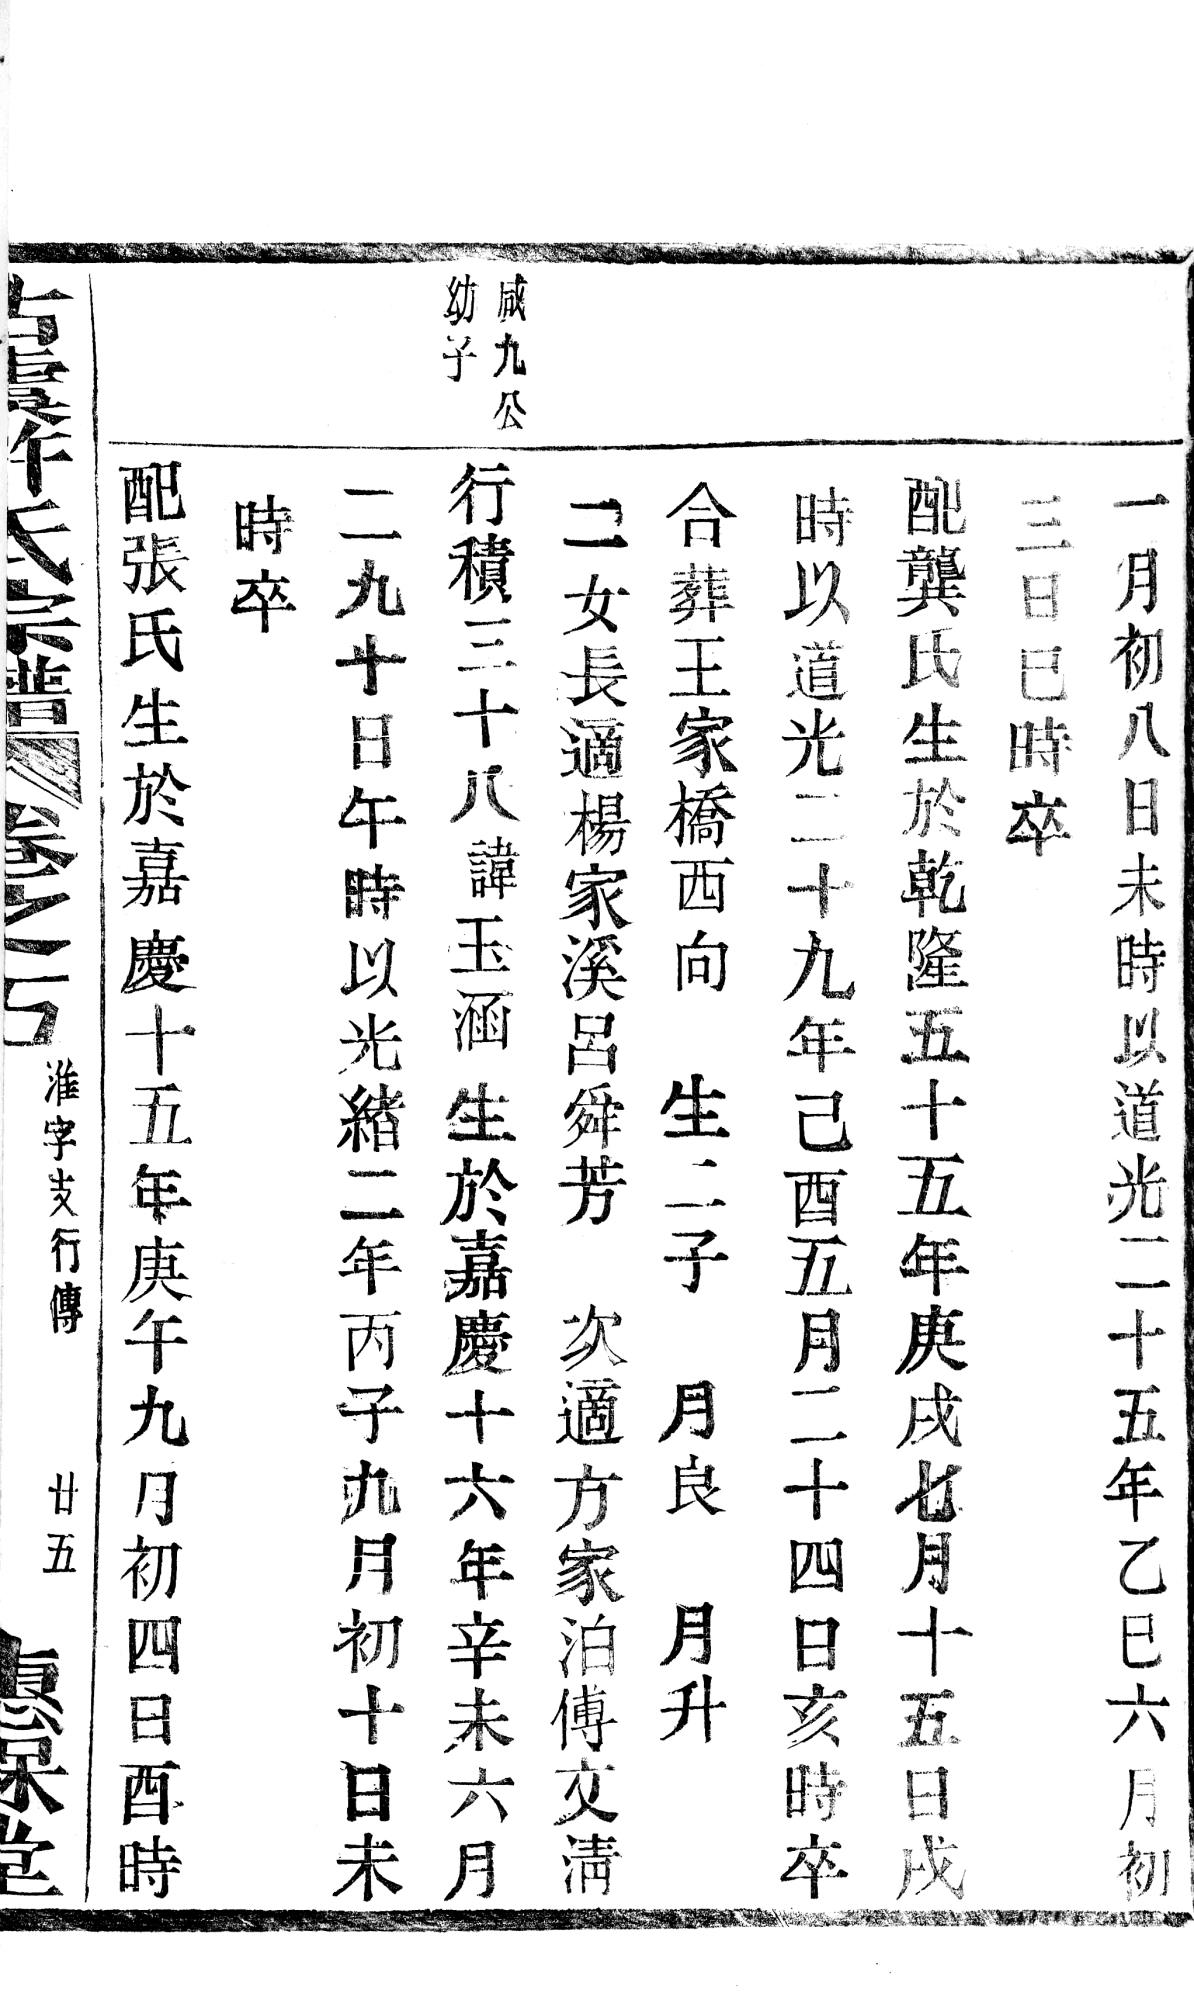 一月初八日未時以道光二十五年乙巳六月初
三日巳時卒
配龔氏生於乾隆五十五年庚戌七月十五日戌
時以道光二十九年己酉五月二十四日亥時卒
合葬王家橋西向 生二子 月良 月升
二女長適楊家溪呂舜芳 次適方家泊傅文淸
咸九公
幼子
行積三十八諱玉涵生於嘉慶十六年辛未六月
二九十日午時以光緒二年丙子九月初十日未
時卒
配張氏生於嘉慶十五年庚午九月初四日酉時
古虞許氏宗譜 卷之 淮字支行傳 廿五 惠保堂